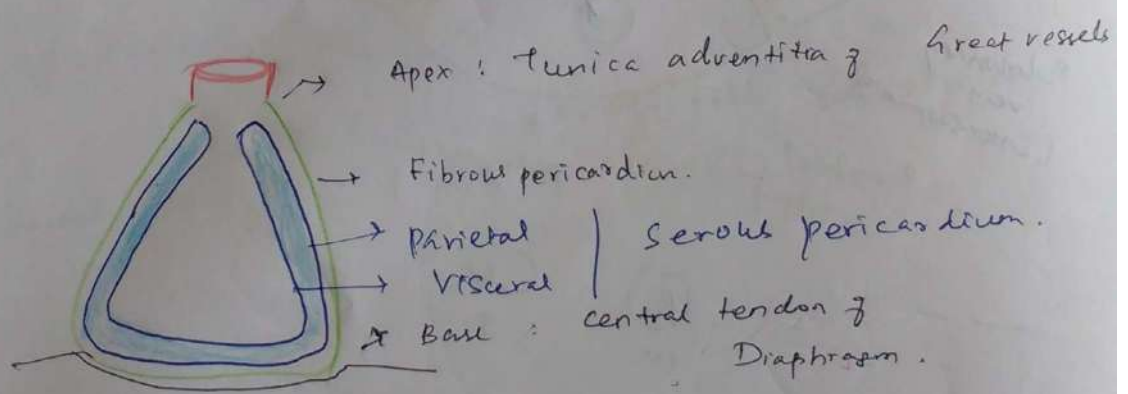 Apex : Tunica adventitia of Great vessels
Fibrous pericardium.
Parietal
Visceral
Serous pericardium.
Base : central tendon of
Diaphragm.